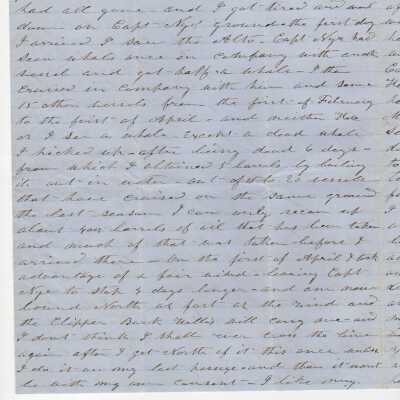 had all gone - and I got tired and went
down on Capt Nye's grounds the first day
I arrived I saw the Alto - Capt Nye had
Seen whales once in Company with another
vessel and got half a whale - I then
Cruised in Company with him and some
15 other vessels from the first of February
to the first of April - and neither He
or I see a whale except a dead whale
I picked up - after being dead 6 days -
from which I obtained 5 barrels by boiling
it out in water - out of 15 to 20 vessels
that have Cruised on the same ground
the last season I can only recon up
about 400 barrels of oil that has been taken
and much of that was taken before I
arrived there - On the first of April I took
advantage of a fair wind - leaving Capt
Nye to Stop 8 days longer - and am now
bound North as fast as the wind and
the Clipper Bark will carry me - and
I dont think I shall ever cross the line
again after I get North of it this once unless
I do it on my last passage - and then it wont
be with my own consent - I like my